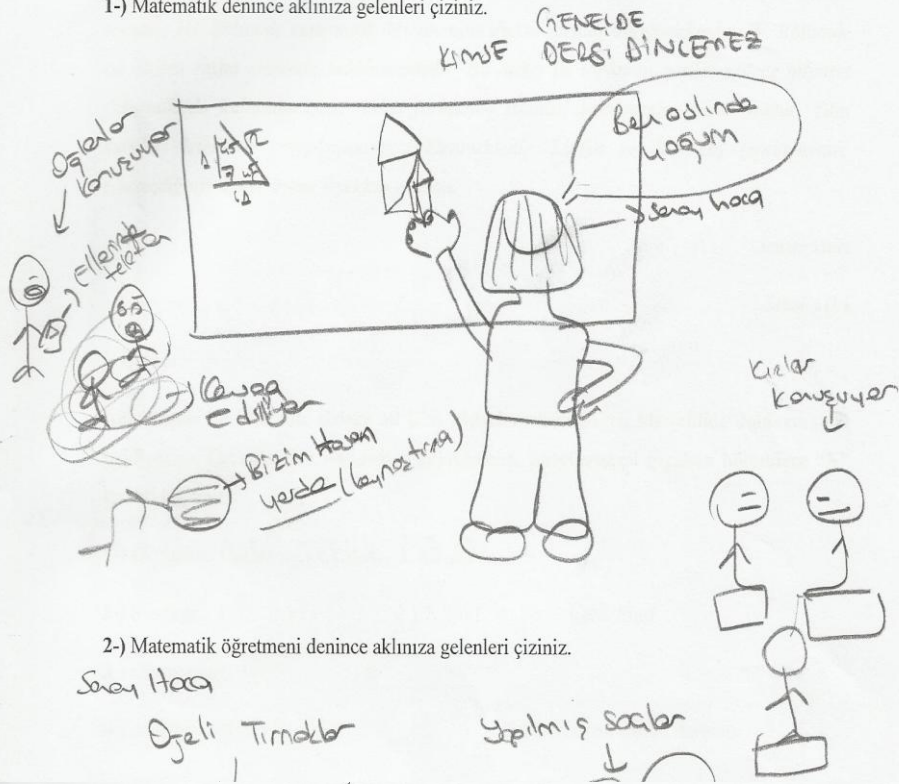 1-) Matematik denince aklınıza gelenleri çiziniz.
GENELDE
KİMSE DERSİ DİNLEMEZ
Ben aslında
yoğum
hoca
konuşuyor
Ellerinde
telefon
Kavga
Ediliyor
Bizim Hasan
yerde (kaynaştırma)
Kızlar
Konuşuyor
2-) Matematik öğretmeni denince aklınıza gelenleri çiziniz.
Hoca
Ojeli Tırnaklar
Yapılmış Saçlar